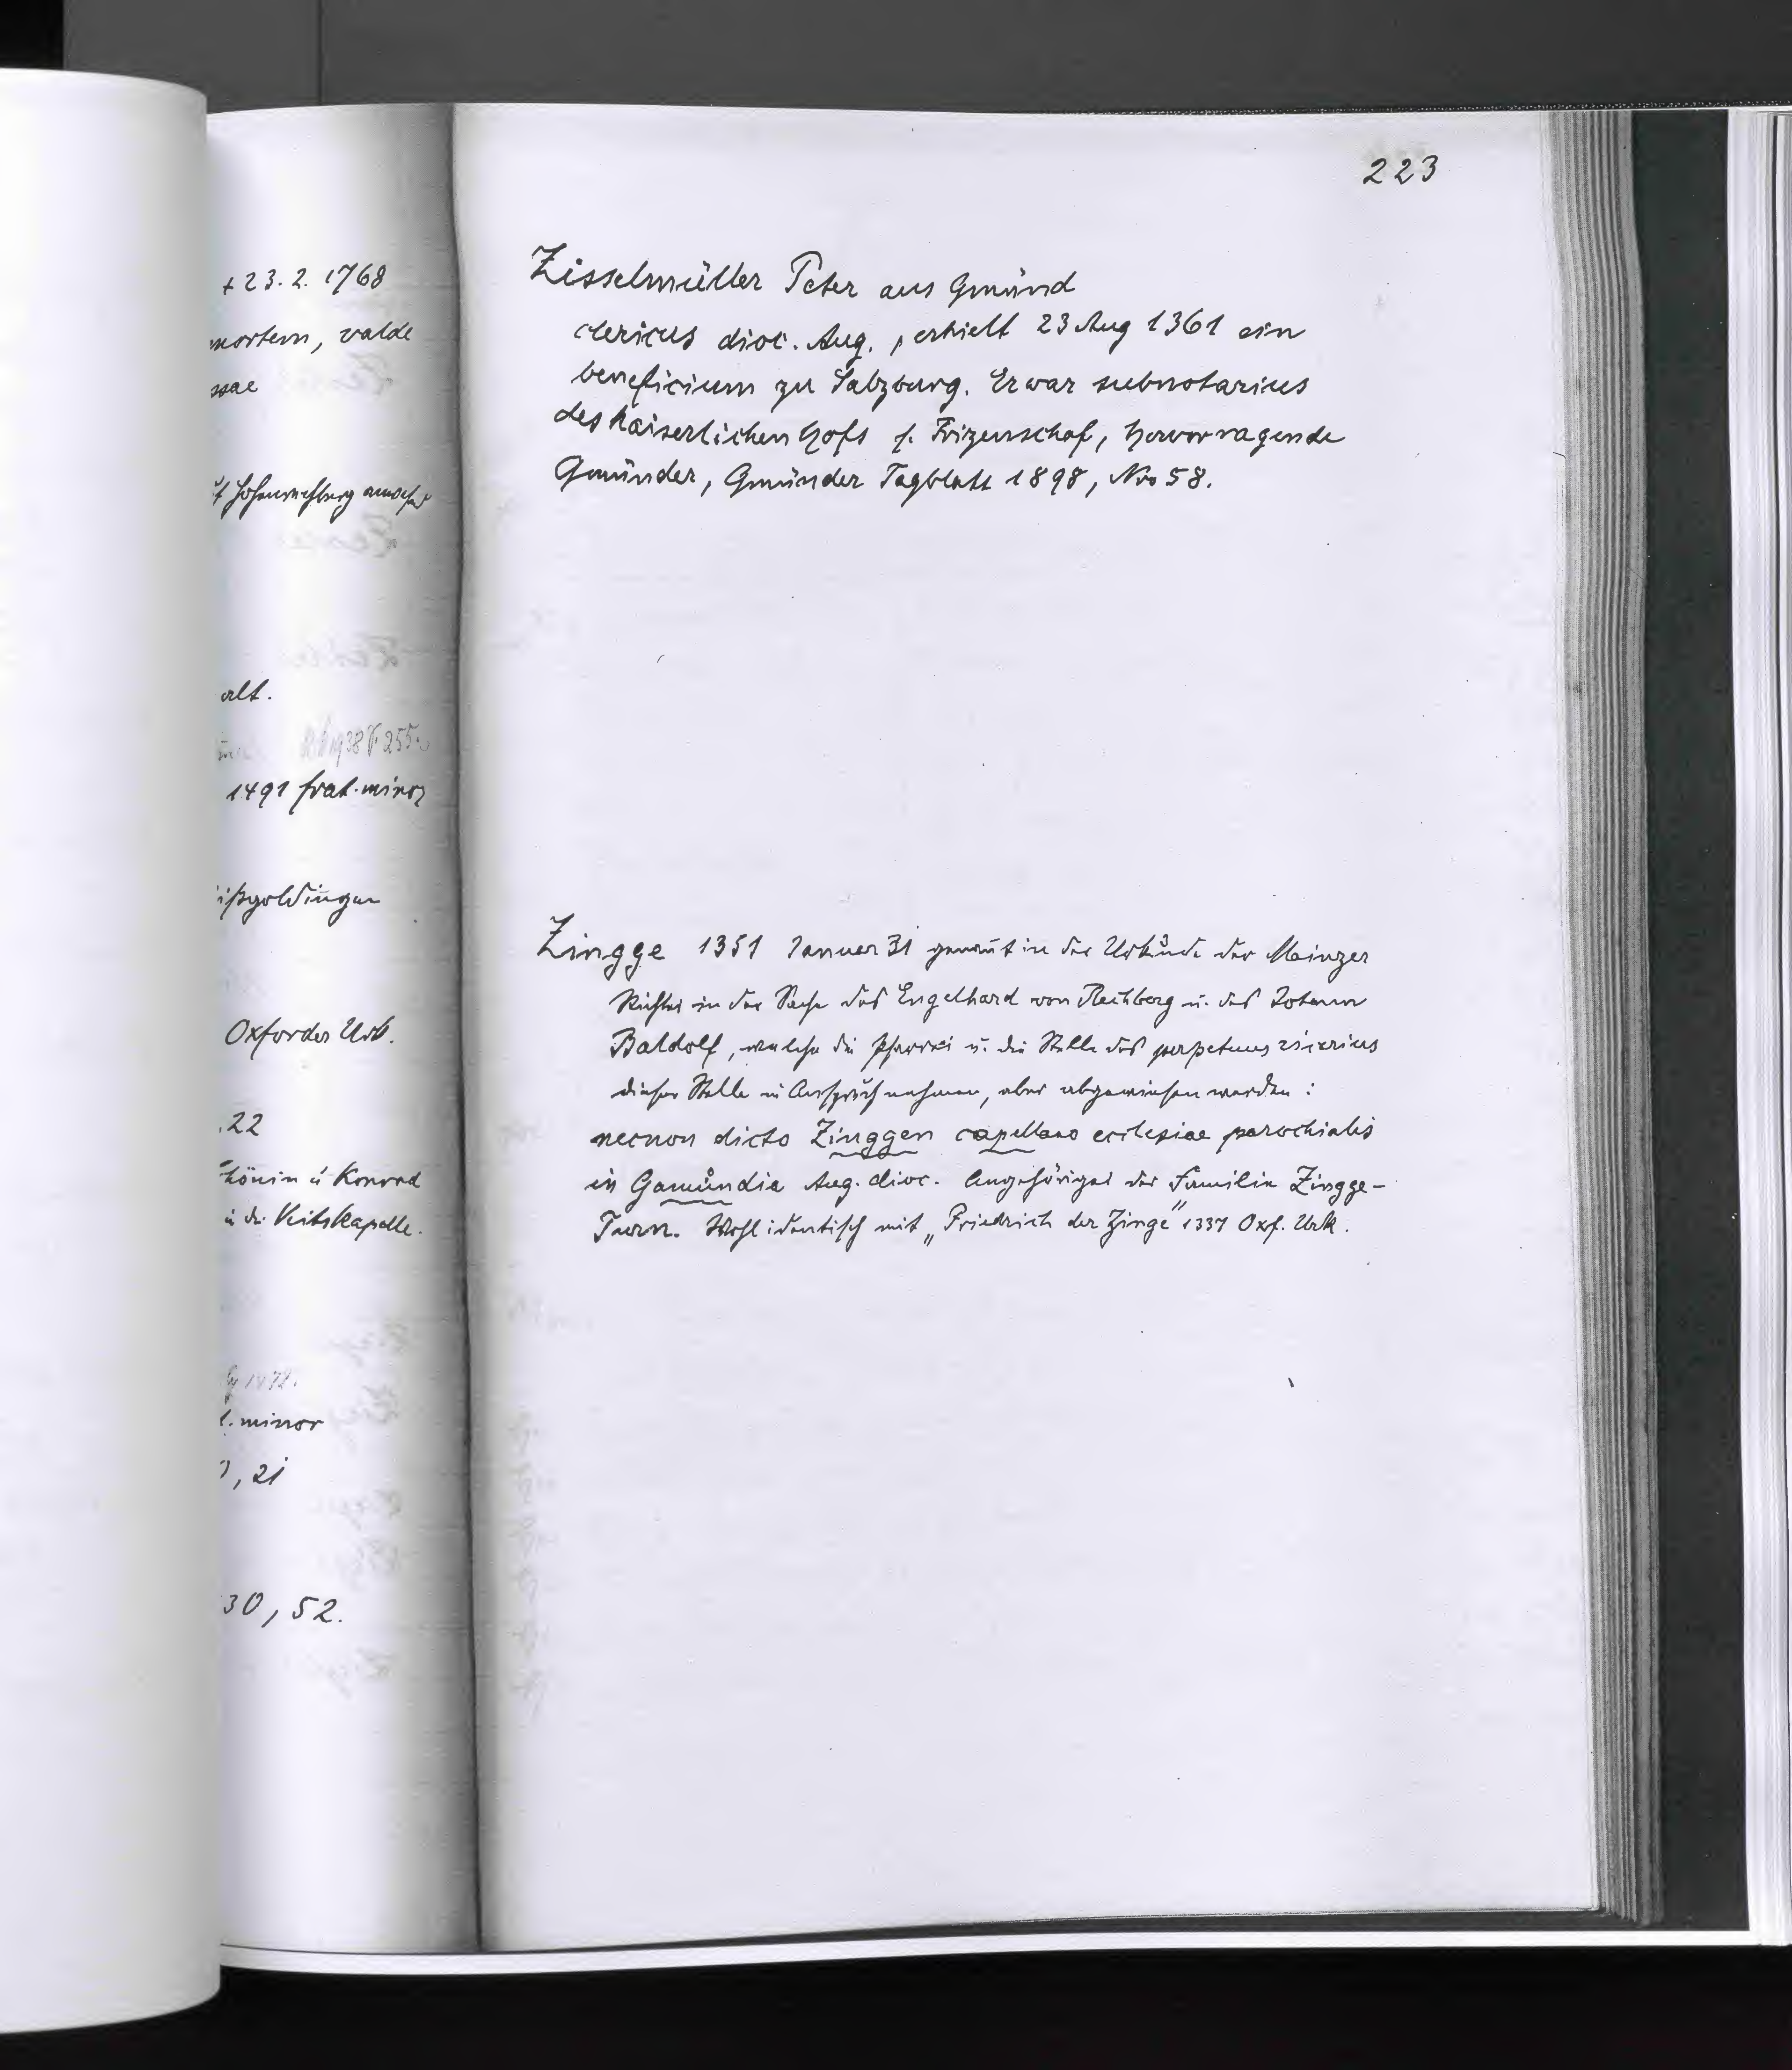 + 23. 2. 1768
mortem, valde
ssae
alt.
1938 S. 255.
1491 frat. minor
ißgoldingen
Oxforder Urk.
.22
Konrad
in der Veitskapelle.
t. minor
, 21
30, 52.
223
Zisselmüller Peter aus Gmünd
clericus dioc. Aug., erhielt 23 Aug 1361 ein
beneficium zu Salzburg. Er war subnotarius
des kaiserlichen Hofs s. Frizenschaf, hervorragende
Gmünder, Gmünder Tagblatt 1898, No 58.
Zingge 1351 Januar 31 genannt in der Urkunde der Mainzer
Richter in der Sache des Engelhard von Rechberg u. des Johann
Baldolf, welche die Pfarrei u. die Stelle des perpetuus vicarius
dieser Stelle in Anspruch nahmen, aber abgewiesen wurden:
necnon dicto Zinggen capellano ecclesiae parochialis
in Gamundia Aug. dioc. Angehöriger der Familie Zingge-
Turn. Wohl identisch mit „Friedrich der Zinge" 1337 Oxf. Urk.